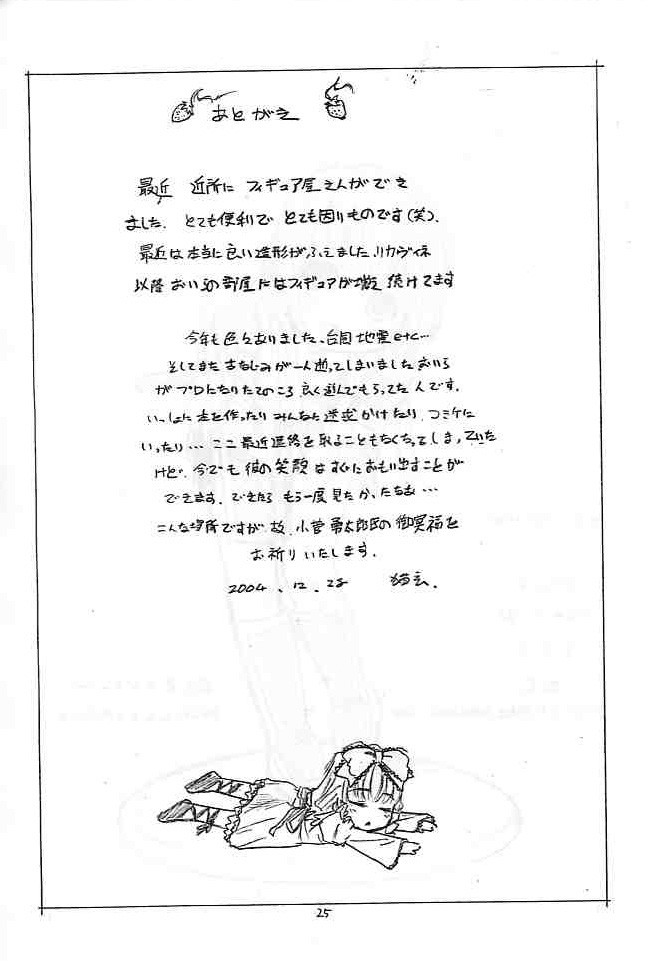 あとがき
最近 近所に フィギュア屋さんができ
ました. とても便利で とても困りものです(笑).
最近は本当に良い造形がふえました.リカヴィネ
以降 おいらの部屋にはフィギュアが増え続けてます
今年も色々ありました、台風 地震 etc…
そしてまた おさなじみが一人逝ってしまいました おいら
がプロになりたてのころ 良く遊んでもらってた人です.
いっしょに本を作ったり みんなに迷惑かけたり、コミケに
いったり… ここ最近連絡を取ることもなくなってしまっていた
けど、今でも彼の笑顔はすぐにおもい出すことが
できます. できたら もう一度見たかったなぁ…
こんな場所ですが 故、小菅勇太郎氏の御冥福を
お祈りいたします.
2004、12、28
25